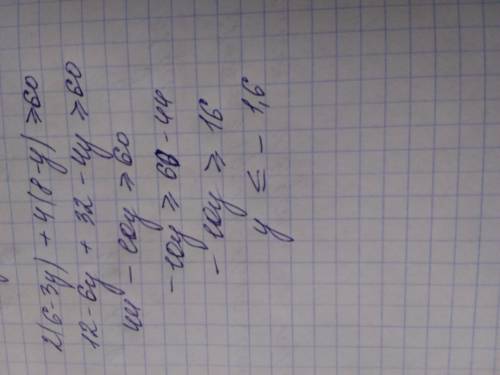 2(6-3y) + 4(8-y) ≥ 60
12-6y + 32 - 4y ≥ 60
44 - 10y ≥ 60
-10y ≥ 60-44
-10y ≥ 16
y ≤ -1,6